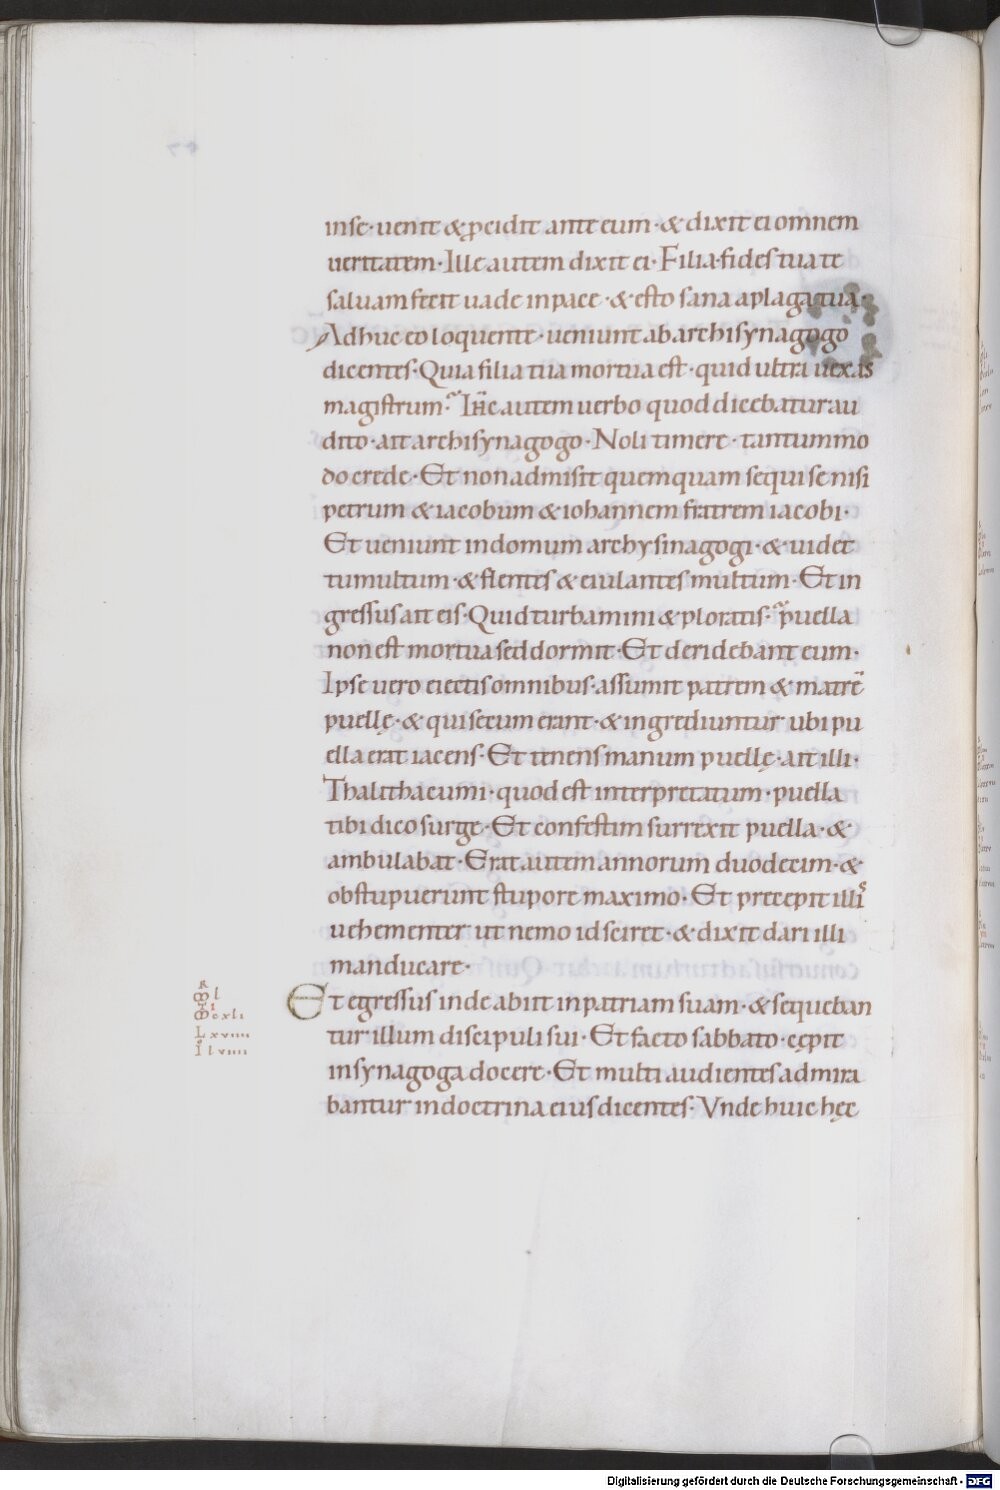 inse· uenit & p̱cidit ante eum· & dixit ei omnem
ueritatem· Ille autem dixit ei· Filia· fides tua te
saluam fecit uade in pace· & esto sana a plaga tua·
Adhuc eo loquente· ueniunt ab archisynagogo
dicentes· Quia filia tua mortua est· quid ultra uexas
magistrum· Ih̄c autem uerbo quod dicebatur au
dito· ait archisynagogo· Noli timere· tantummo
do crede· Et non admisit quemquam sequi se nisi
petrum & iacobum & iohannem fratrem iacobi·
Et ueniunt in domum archysinagogi· & uidet
tumultum· & flentes & eiulantes multum· Et in
gressus ait eis· Quid turbamini & ploratis· puella
non est mortua sed dormit· Et deridebant eum·
Ipse uero eiectis omnibus· assumit patrem & matrē
puellę· & qui secum erant· & ingrediuntur ubi pu
ella erat iacens· Et tenens manum puellę· ait illi·
Thalitha cumi· quod est interpretatum· puella
tibi dico surge· Et confestim surrexit puella· &
ambulabat· Erat autem annorum duodecim· &
obstupuerunt stupore maximo· Et precepit illis
uehementer ut nemo id sciret· & dixit dari illi
manducare·
Et egressus inde abiit in patriam suam· & sequeban
tur illum discipuli sui· Et facto sabbato· cępit
in synagoga docere· Et multi audientes admira
bantur in doctrina eius dicentes· Vnde huic hęc
R
ꝳ l
I
ꝳ cxli
L xviiii
I lviiii
Digitalisierung gefördert durch die Deutsche Forschungsgemeinschaft - DFG